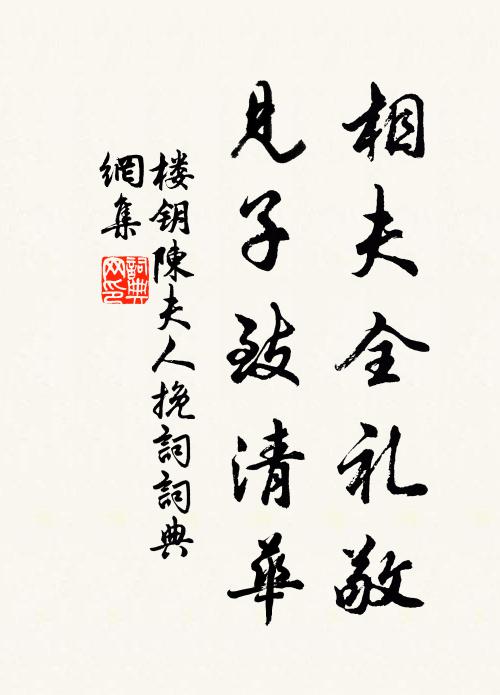 相夫全礼敬
見子致清華
楼钥陳夫人挽詞詞典
網集
詞典網印